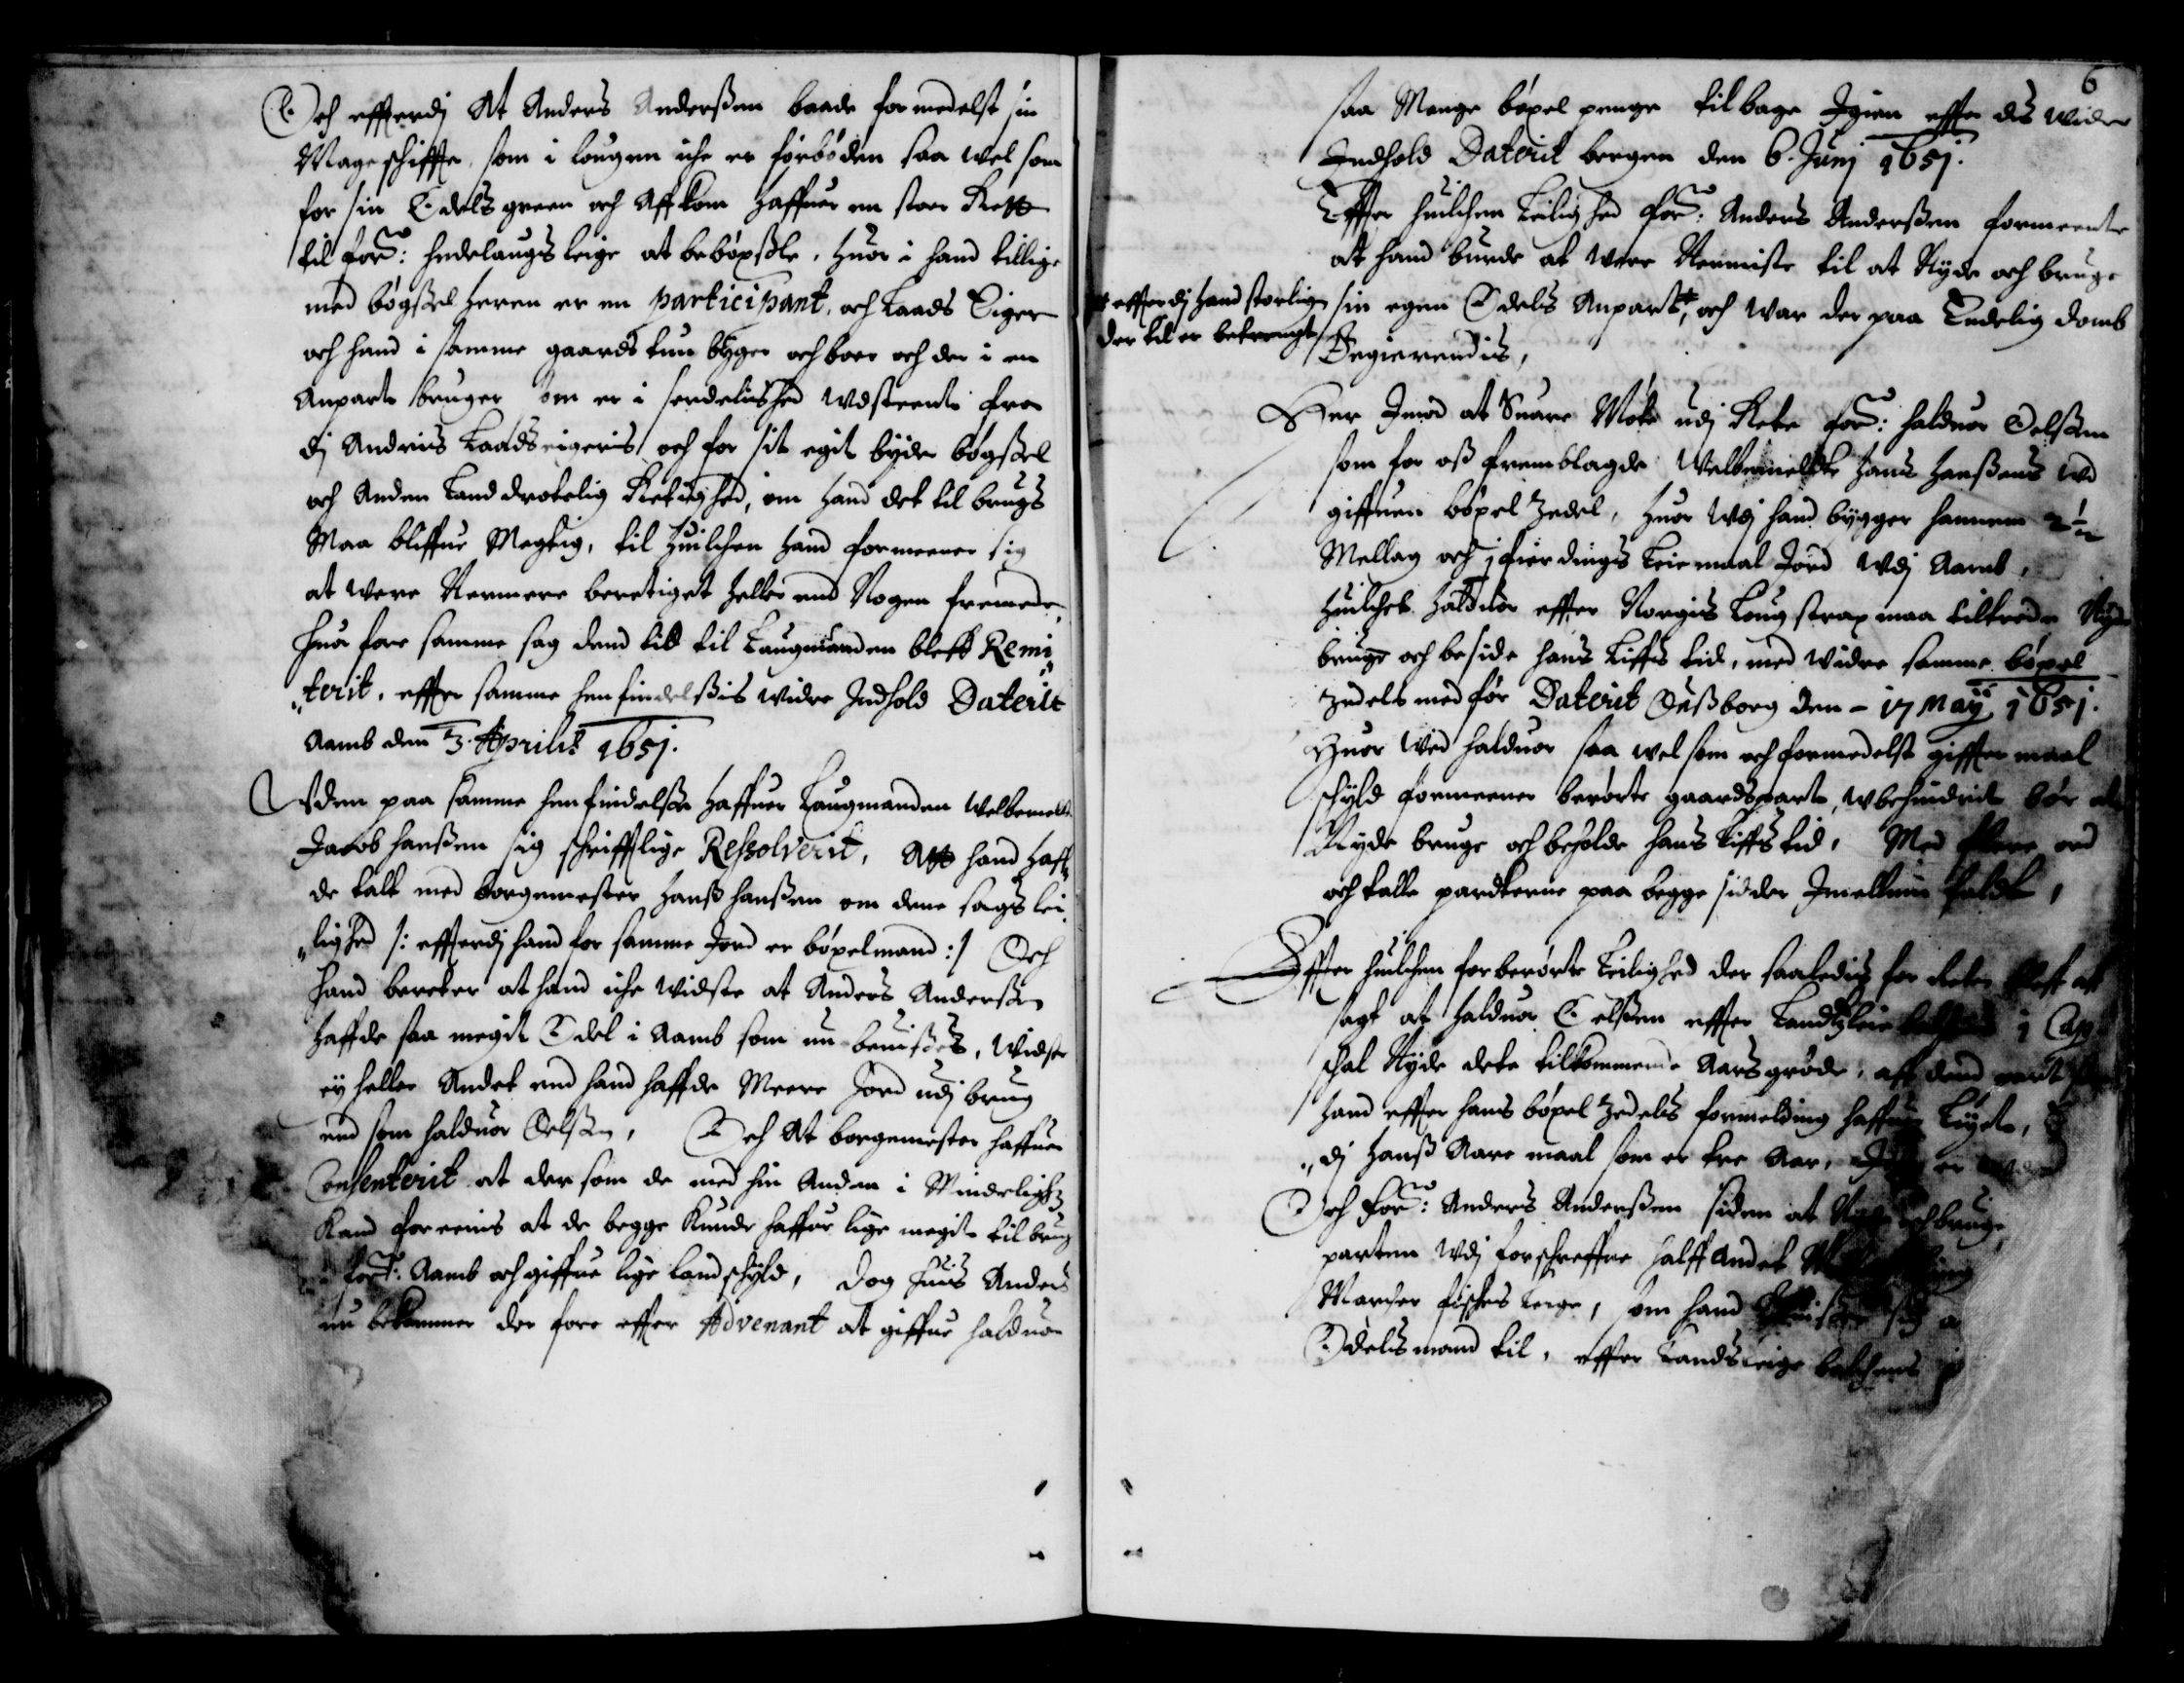 Och effterdj At Anders Anderßen baade formedelst sin
Mageschiffte, som i lougen iche er forbøden saa wel som
for sin Odels green och Affkom Haffuer en stoer Rett
til forⁿᵉ: hndelaugs leige at bebøxsle, huor i hand tillige
med bøgßel Herren er en participant, och Laads Eiger
och hand i samme gaards tun bÿger och boer och der i en
Anpart bruger som er i serdelished wdsteent fra
dj Andris Laads eigeris och for sit egit bÿder bøgßel
och Anden Landdrotelig Retighed, om hand det til brugs
Maa bliffue Megtig, til huilchen hand formeener sig
at were Nermere beretiget heller end Nogen fremede,
huor fore samme sag dend tid til Laugmanden bleff Remi„
„terit, effter samme henfindelßis widre Indhold Daterit
Aamb den 3. Aprilis 1651.
Uden paa samme henfindelße haffuer Laugmanden Welbemelte
Jacob Hanßen sig schrifftlige Reßolverit, Att hand haff„
de talt med borgemester Hanß Hanßen om dene sags lei„
„lighed /: effterdj hand for samme Jord er bøxelmand :/ Och
hand bereter at hand iche widste at Anders Anderßen
haffde saa megit Odel i Aamb som nu beuißes, widste
eÿ heller Andet end hand haffde Meere Jord udj brug
end som Halduor Oelßen, Och At borgemester haffuer
Consenterit at dersom de med hin Anden i Minderlighed
Kand foreenis at de begge Kunde haffue lige megit til brug
i forⁿᵉ: Aamb och giffue lige landschÿld, dog huis Anders
nu bekommer der fore effter Advenant at giffue Halduor
6
saa Mange bøxel penge tilbage Igien effter dis widre
Indhold Daterit bergen den 6. Junj 1651.
Effter huilchen Leilighed forⁿᵉ: Anders Anderßen formeente
at hand burde at were Nermiste til at Nÿde och bruge
# effterdj hand storlig
der til er betrengt
sin egen Odels Anpart #, och war der paa Endelig domb
Begierendis,
Her Imod at Suare Møte udj Rete forⁿᵉ: Halduor Oelßen
som for oß fremblagde Welbemeldte Hans Hanßens wd
giffuen bøxel Zedel, huor wdj hand bÿgger hannem 2½
Mellag och j fierdings Leiemaal Jord wdj Aamb,
huilchet Halduor effter Norgis Loug strax maa tiltrede Nÿde
bruge och beside hans Liffs tid, med widre samme bøxel
Zedels medfør Daterit Dußborg den – 17 Maÿ 1651.
Huor wed Halduor saa wel som och formedelst gifftermaal
schÿld formeener berørte gaardspart, wbehindrit bør at
Nÿde bruge och beholde hans Liffs tid, Med flere ord
och talle parterne paa begge sidder Imellum faldt,
Effter huilchen forberørte Leilighed der saaledis for Reten bleff aff
sagt at Halduor Oelßen effter Landtzleie balchens j Cap
schal Nÿde dete tilkommende Aars grøde, aff dend part
hand effter hans bøxel Zedels formelding haffuer Lÿet,
„dj Hanß Aare maal som er tre Aar, er
Och forⁿᵉ: Anders Anderßen siden at Nÿde och bruge
parten wdj forschreffne Halff Andet
Marcher fisches Leige, som hand sig
Odelsmand til, effter Landsleige balchens